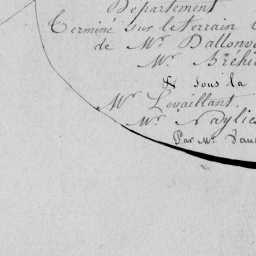 Département
Terminé sur le terrain
de Mr. Dallonv
Mr. Bréhi
& sous la
Mr Levaillant.
Mr. Naylie
Par Mr. Vau